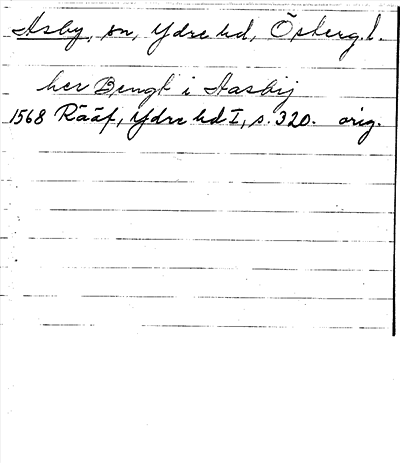 Asby, sn, Ydre hd, Österg.l.
her Bengt i Aasbij
1568 Rääf, Ydre hd I, s. 320. orig.